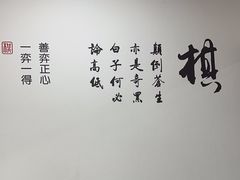 棋
顛倒蒼生
亦是奇黑
白子何必
論高低
善弈正心
一弈一得